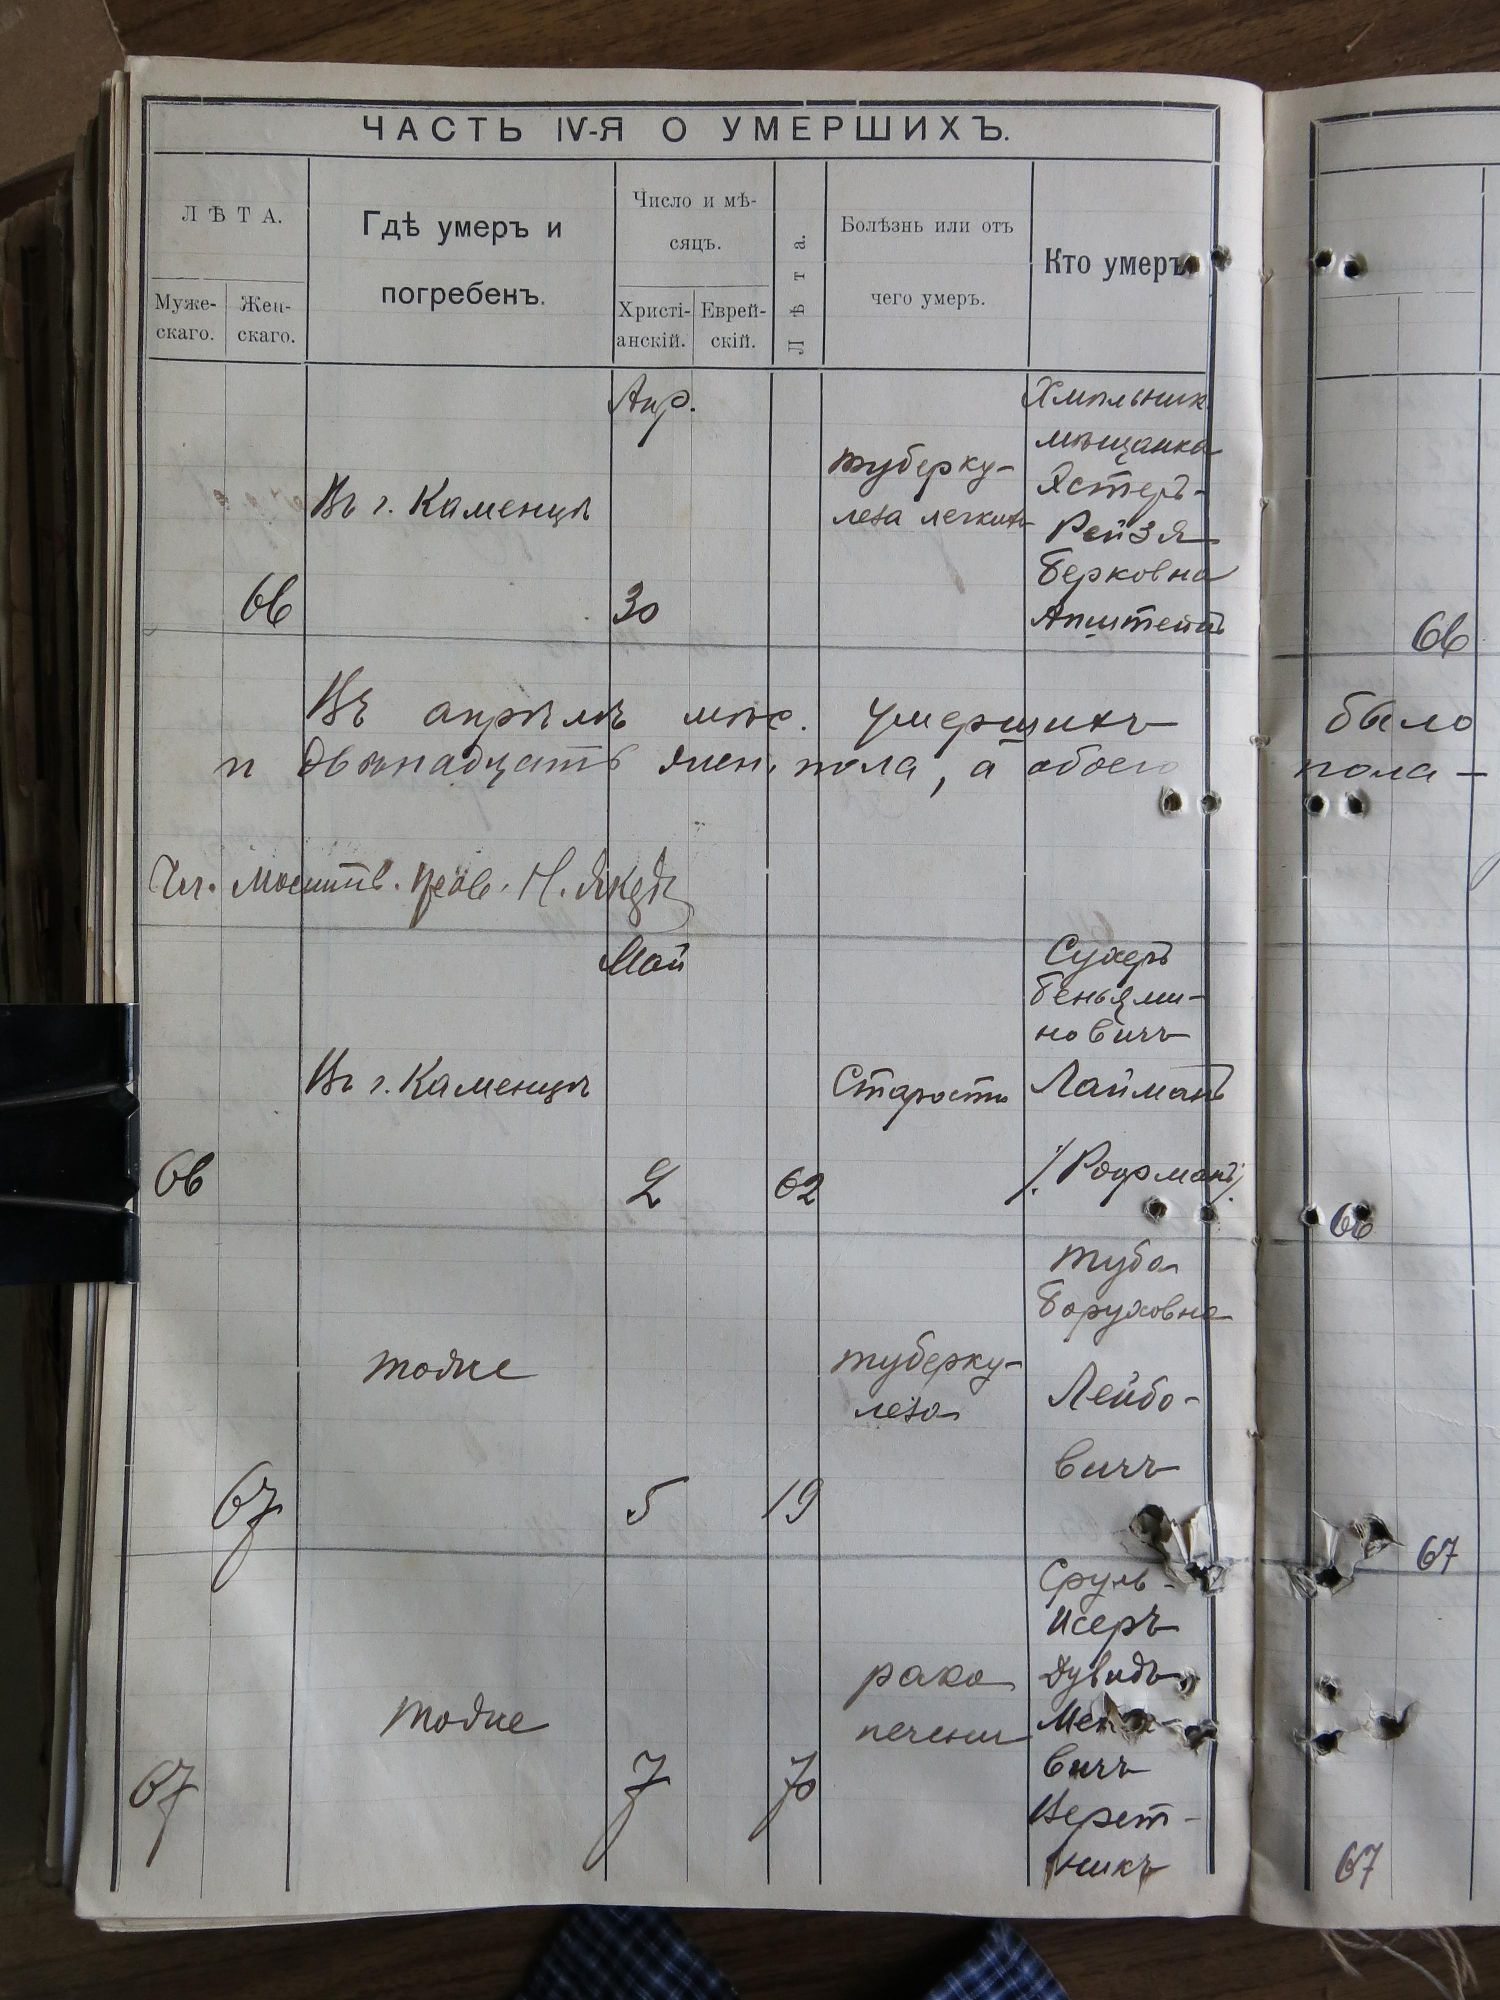 ЧАСТЬ IV-Я О УМЕРШИХЪ.
ЛѢТА.
Муже-
скаго.
Жен-
скаго.
Гдѣ умеръ и
погребенъ.
Число и мѣ-
сяцъ.
Христі-
анскій.
Еврей-
скій.
Лѣта.
Болѣзнь или отъ
чего умеръ.
Кто умеръ.
Апр.
66
Въ г. Каменцѣ
30
туберку-
леза легкихъ
Хмѣльник.
мѣщанка
Эстеръ-
Рейзя
Берковна
Апштейнъ
66
Въ апрѣлѣ мѣс. умершихъ было
и двѣнадцать жен. пола, а обоего пола —
Чл.
Май
66
Въ г. Каменцѣ
2
62
Старость
Сухеръ
Беньями-
новичъ
Лайманъ
/. Рофманъ ./
66
67
тоже
5
19
туберку-
леза
Туба
Боруховна
Лейбо-
вичъ
67
67
тоже
7
70
рака
печени
Сруль-
Исеръ
Дувидъ
вичъ
Верет-
никъ
67